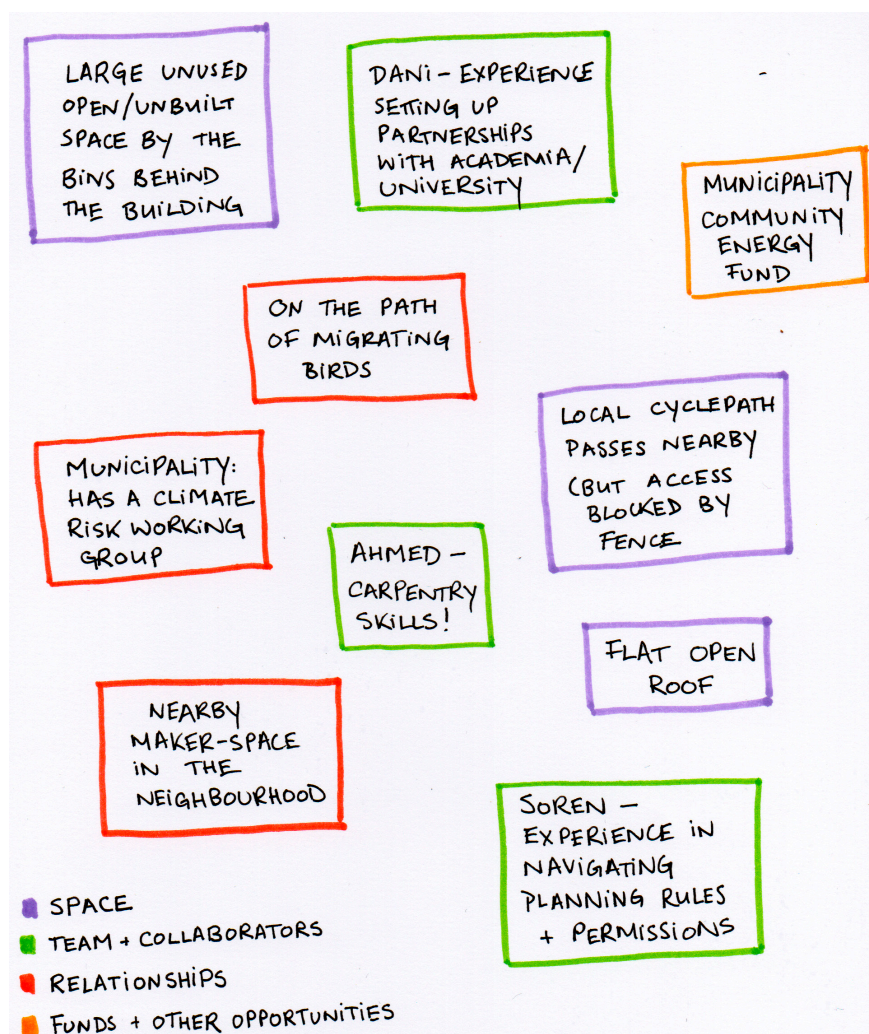 LARGE UNUSED
OPEN/UNBUILT
SPACE BY THE
BINS BEHIND
THE BUILDING
DANI - EXPERIENCE
SETTING UP
PARTNERSHIPS
WITH ACADEMIA/
UNIVERSITY
MUNICIPALITY
COMMUNITY
ENERGY
FUND
ON THE PATH
OF MIGRATING
BIRDS
LOCAL CYCLEPATH
PASSES NEARBY
(BUT ACCESS
BLOCKED BY
FENCE
MUNICIPALITY:
HAS A CLIMATE
RISK WORKING
GROUP
AHMED -
CARPENTRY
SKILLS!
FLAT OPEN
ROOF
NEARBY
MAKER-SPACE
IN THE
NEIGHBOURHOOD
SOREN -
EXPERIENCE IN
NAVIGATING
PLANNING RULES
+ PERMISSIONS
SPACE
TEAM + COLLABORATORS
RELATIONSHIPS
FUNDS + OTHER OPPORTUNITIES